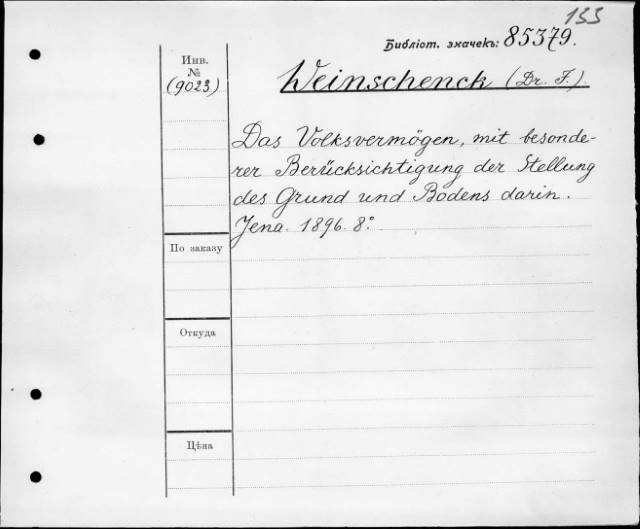 133
Библіот. значекъ: 85379.
Инв.
№
(9023)
Weinschenck (Dr. F.)
Das Volksvermögen, mit besonde-
rer Berücksichtigung der Stellung
des Grund und Bodens darin.
Jena. 1896. 8°
По заказу
Откуда
Цѣна